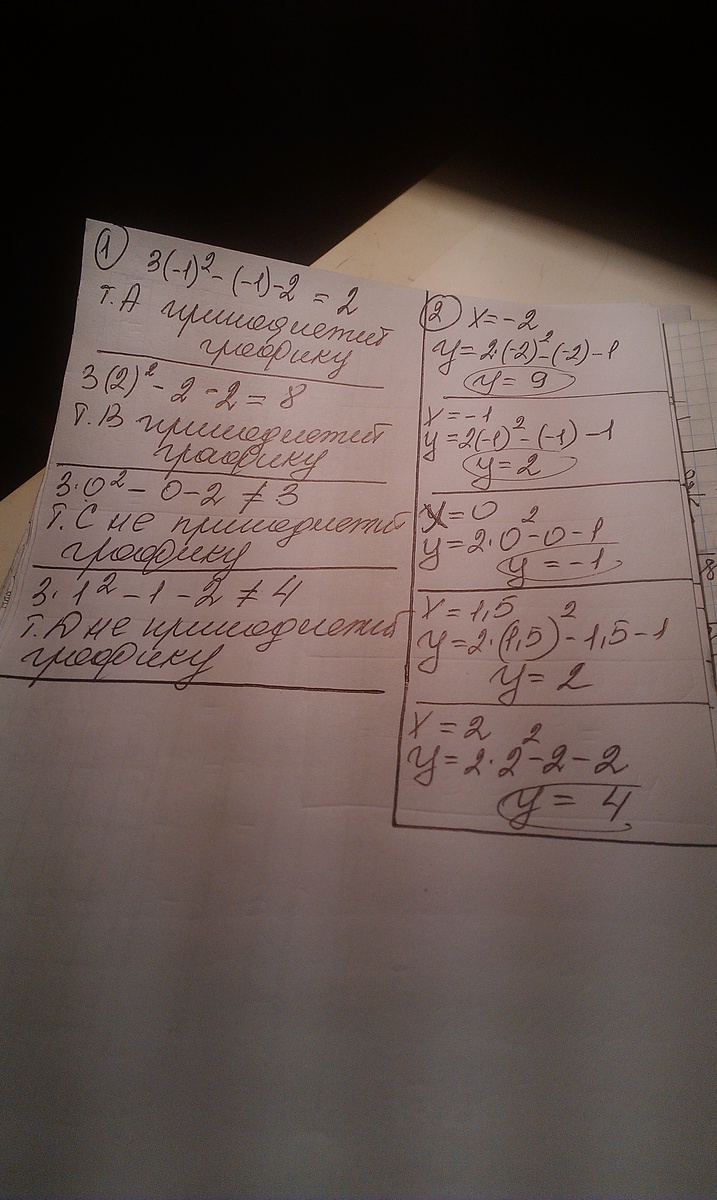 1
3(-1)² - (-1) - 2 = 2
т.А принадлежит
графику
3(2)² - 2 - 2 = 8
т.В принадлежит
графику
3·0² - 0 - 2 ≠ 3
т.С не принадлежит
графику
3·1² - 1 - 2 ≠ 4
т.D не принадлежит
графику
2 x = -2
y = 2·(-2)² - (-2) - 1
y = 9
x = -1
y = 2(-1)² - (-1) - 1
y = 2
x = 0
y = 2·0² - 0 - 1
y = -1
x = 1,5
y = 2·(1,5)² - 1,5 - 1
y = 2
x = 2
y = 2·2² - 2 - 2
y = 4